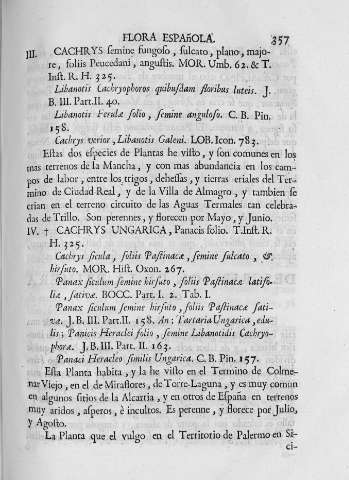 FLORA ESPAñOLA. 357
III. CACHRYS semine fungoso, sulcato, plano, majo-
re, foliis Peucedani, angustis. MOR. Umb. 62. & T.
Inst. R. H. 325.
Libanotis Cachryophoros quibusdam floribus luteis. J.
B. III. Part.II. 40.
Libanotis Ferulæ folio, semine anguloso. C. B. Pin.
158.
Cachrys verior, Libanotis Galeni. LOB. Icon. 783.
Estas dos especies de Plantas he visto, y son comunes en los
mas terrenos de la Mancha, y con mas abundancia en los cam-
pos de labor, entre los trigos, dehessas, y tierras eriales del Ter-
mino de Ciudad Real, y de la Villa de Almagro, y tambien se
crian en el terreno circuito de las Aguas Termales tan celebra-
das de Trillo. Son perennes, y florecen por Mayo, y Junio.
IV. † CACHRYS UNGARICA, Panacis folio. T. Inst. R.
H. 325.
Cachrys sicula, foliis Pastinacæ, semine sulcato, &
hirsuto. MOR. Hist. Oxon. 267.
Panax siculum semine hirsuto, foliis Pastinacæ latifo-
liæ, sativæ. BOCC. Part. I. 2. Tab. I.
Panax siculum semine hirsuto, foliis Pastinacæ sati-
væ. J. B. III. Part.II. 158. An: Tartaria Ungarica, edu-
lis; Panacis Heraclei folio, semine Libanotidis Cachryo-
phoræ. J. B. III. Part. II. 163.
Panaci Heracleo similis Ungarica. C. B. Pin. 157.
Esta Planta habita, y la he visto en el Termino de Colme-
nar Viejo, en el de Miraflores, de Torre-Laguna, y es muy comun
en algunos sitios de la Alcarria, y en otros de España en terrenos
muy aridos, asperos, è incultos. Es perenne, y florece por Julio,
y Agosto.
La Planta que el vulgo en el Territorio de Palermo en Si-
ci-